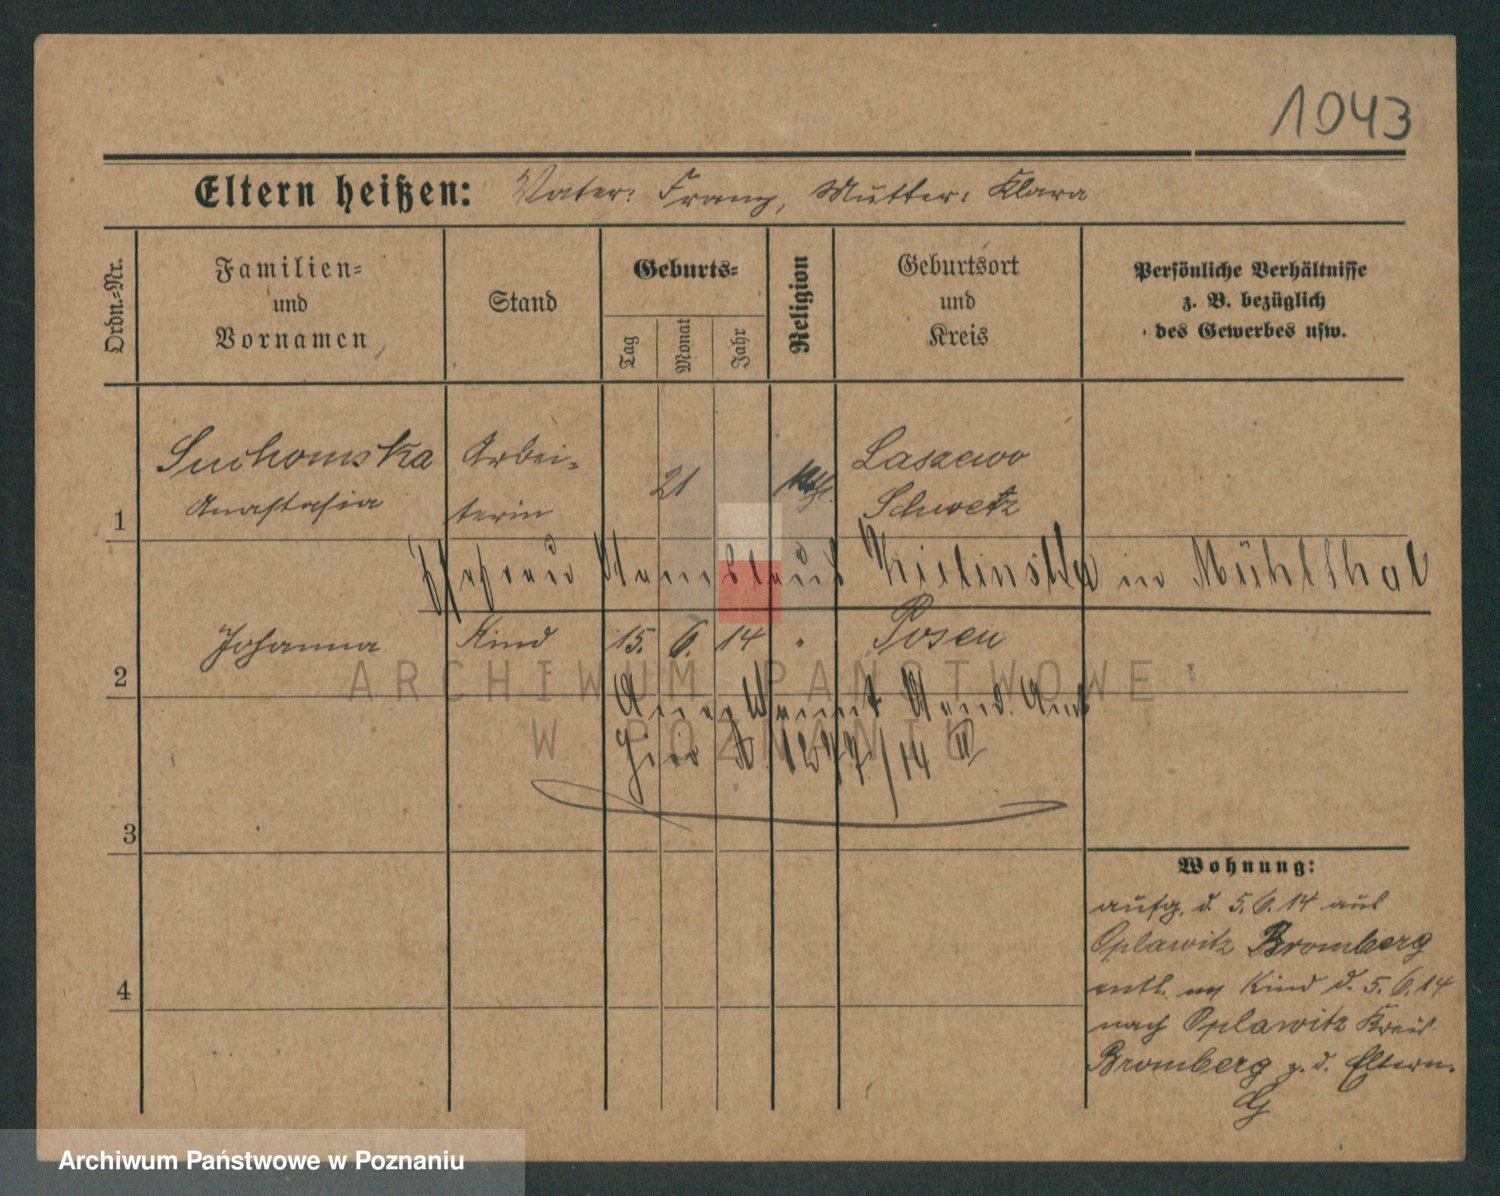 1043
Eltern heißen: Vater: Franz, Mutter: Klara
Ordn.=Nr.
Familien=
und
Vornamen
Stand
Geburts=
Tag
Monat
Jahr
Religion
Geburtsort
und
Kreis
Persönliche Verhältnisse
z. B. bezüglich
des Gewerbes usw.
1
Suchomska
Anastasia
Arbei=
terin
21
kath.
Laszewo
Schwetz
Ehefrau Stanislaus Kielinska in Mühlthal
2
Johanna
Kind
15. 6. 14
"
Posen
Stand. Amt
hier /14 II
3
4
Wohnung:
aufg. d. 5.6.14 aus
Oplawitz Bromberg
entl. m Kind d. 5.6.14
nach Oplawitz Kreis
Bromberg z. d. Eltern.
ARCHIWUM PAŃSTWOWE
W POZNANIU
Archiwum Państwowe w Poznaniu